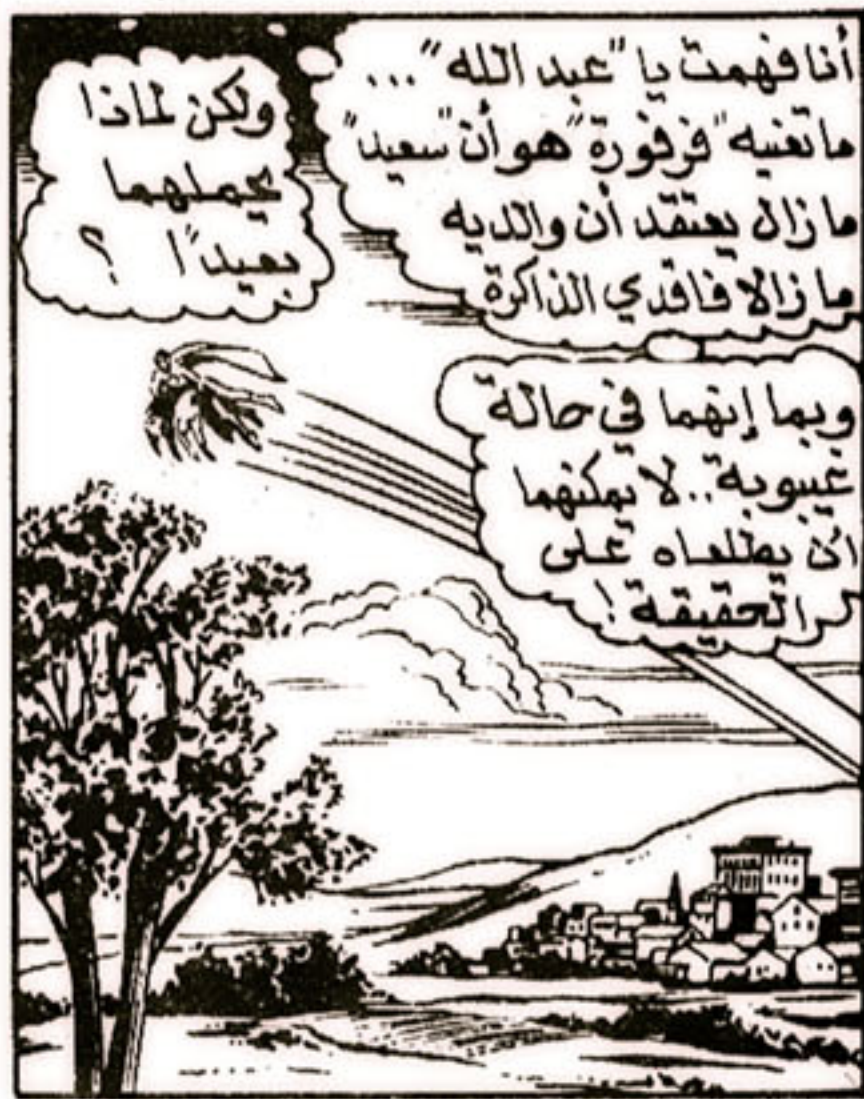 أنا فهمت يا "عبد الله"...
ما تعنيه "فرفورة" هو أن "سعيد"
ما زال يعتقد أن والديه
ما زالا فاقدي الذاكرة
وبما إنهما في حالة
غيبوبة.. لا يمكنهما
أن يطلعاه على
الحقيقة!
ولكن لماذا
يحملهما
بعيدًا ؟